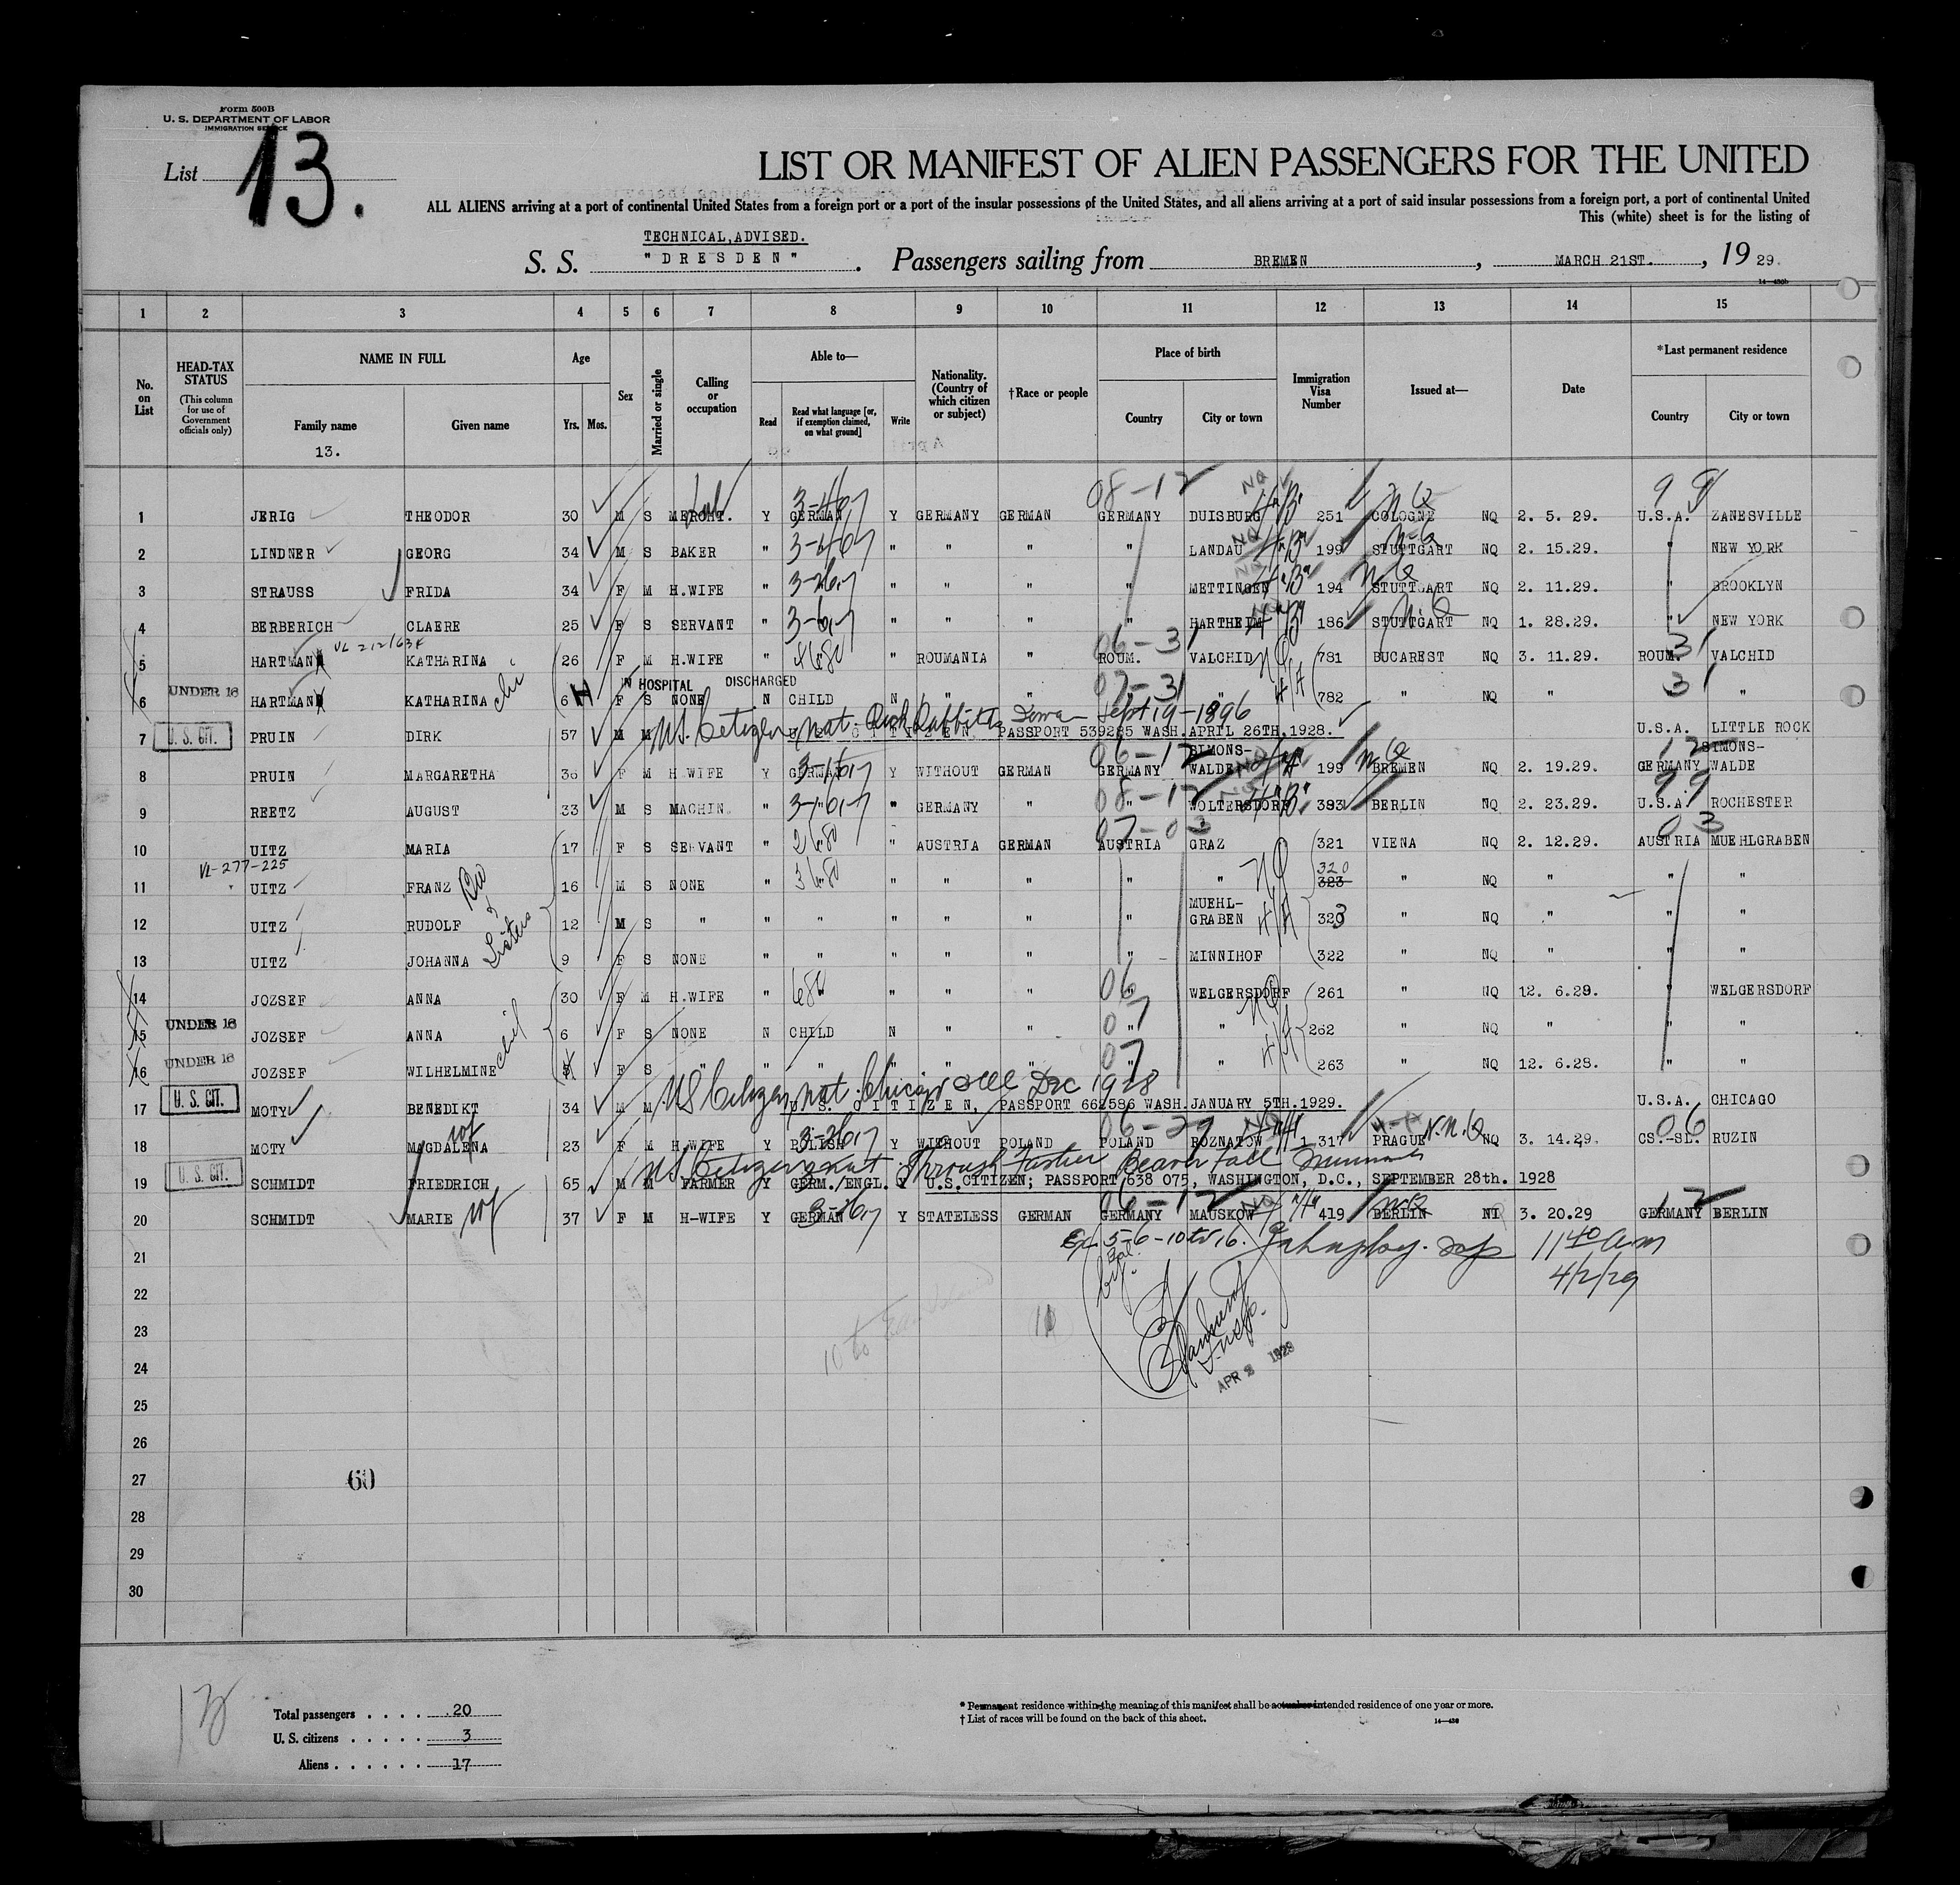 Form 500B
U. S. DEPARTMENT OF LABOR
IMMIGRATION SERVICE
List 13.
LIST OR MANIFEST OF ALIEN PASSENGERS FOR THE UNITED
ALL ALIENS arriving at a port of continental United States from a foreign port or a port of the insular possessions of the United States, and all aliens arriving at a port of said insular possessions from a foreign port, a port of continental United
This (white) sheet is for the listing of
TECHNICAL,ADVISED.
S. S. "DRESDEN". Passengers sailing from BREMEN, MARCH 21ST., 1929.
14—430b
1 2 3 4 5 6 7 8 9 10 11 12 13 14 15
No. on List
HEAD-TAX STATUS (This column for use of Government officials only)
NAME IN FULL Family name Given name
13.
Age Yrs. Mos.
Sex
Married or single
Calling or occupation
Able to— Read Read what language [or, if exemption claimed, on what ground] Write
Nationality. (Country of which citizen or subject)
†Race or people
Place of birth Country City or town
Immigration Visa Number
Issued at—
Date
*Last permanent residence Country City or town
08-12 NQ 9 9
1 JERIG THEODOR 30 M S MERCHT. Y GERMAN Y GERMANY GERMAN GERMANY DUISBURG 251 COLOGNE NQ 2. 5. 29. U.S.A. ZANESVILLE
2 LINDNER GEORG 34 M S BAKER " " " " " LANDAU 199 STUTTGART NQ 2. 15.29. " NEW YORK
3 STRAUSS FRIDA 34 F M H.WIFE " " " " " METTINGEN 194 STUTTGART NQ 2. 11.29. " BROOKLYN
4 BERBERICH CLAERE 25 F S SERVANT " " " " " HARTHEIM 186 STUTTGART NQ 1. 28.29. " NEW YORK
06-31 31
5 HARTMAN KATHARINA 26 F M H.WIFE " " " ROUMANIA " ROUM. VALCHID 781 BUCAREST NQ 3. 11.29. ROUM. VALCHID
IN HOSPITAL DISCHARGED 07-31 31
6 UNDER 16 HARTMAN KATHARINA 6 F S NONE N CHILD N " " " " 782 " NQ " " "
US Citizen nat. Iowa Sept 19-1896
7 U. S. CIT. PRUIN DIRK 57 M M U.S. CITIZEN, PASSPORT 539285 WASH.APRIL 26TH.1928. U.S.A. LITTLE ROCK
06-12 12
8 PRUIN MARGARETHA 36 F M H WIFE Y GERMAN Y WITHOUT GERMAN GERMANY SIMONS-WALDE 199 BREMEN NQ 2. 19.29. GERMANY SIMONS-WALDE
08-12 99
9 REETZ AUGUST 33 M S MACHIN. " " " GERMANY " " WOLTERSDORF 393 BERLIN NQ 2. 23.29. U.S.A. ROCHESTER
07-03 03
10 UITZ MARIA 17 F S SERVANT " " " AUSTRIA GERMAN AUSTRIA GRAZ 321 VIENA NQ 2. 12.29. AUSTRIA MUEHLGRABEN
VL-277-225
11 UITZ FRANZ 16 M S NONE " " " " " " " 320 323 " NQ " " "
12 UITZ RUDOLF 12 M S " " " " " " " MUEHL-GRABEN 323 " NQ " " "
13 UITZ JOHANNA 9 F S NONE " " " " " " MINNIHOF 322 " NQ " " "
06
14 JOZSEF ANNA 30 F M H.WIFE " " " " " " WELGERSDORF 261 " NQ 12. 6.29. " WELGERSDORF
07
15 UNDER 16 JOZSEF ANNA 6 F S NONE N CHILD N " " " " 262 " NQ " " "
07
16 UNDER 16 JOZSEF WILHELMINE F S " " " " " " " " 263 " NQ 12. 6.28. " "
US Citizen nat. Chicago Ill Dec 1928
17 U. S. CIT. MOTY BENEDIKT 34 M M U.S. CITIZEN, PASSPORT 662586 WASH.JANUARY 5TH.1929. U.S.A. CHICAGO
06-29 06
18 MOTY MAGDALENA wf 23 F M H.WIFE Y POLISH Y WITHOUT POLAND POLAND ROZNATOW 1 317 PRAGUE NQ 3. 14.29. CS.-SL. RUZIN
US Citizen nat Through Father
19 U. S. CIT. SCHMIDT FRIEDRICH 65 M M FARMER Y GERM./ENGL. Y U.S.CITIZEN; PASSPORT 638 075, WASHINGTON, D.C., SEPTEMBER 28th. 1928
06-12 12
20 SCHMIDT MARIE wf 37 F M H-WIFE Y GERMAN Y STATELESS GERMAN GERMANY MAUSKOW 419 BERLIN 3. 20.29 GERMANY BERLIN
5-6-10 to 16. 11 40 am
21 4/2/29
22
23
24 APR 2 1929
25
26
27 60
28
29
30
Total passengers . . . . 20
U. S. citizens . . . . . 3
Aliens . . . . . . 17
* Permanent residence within the meaning of this manifest shall be actual or intended residence of one year or more.
† List of races will be found on the back of this sheet.
14—430